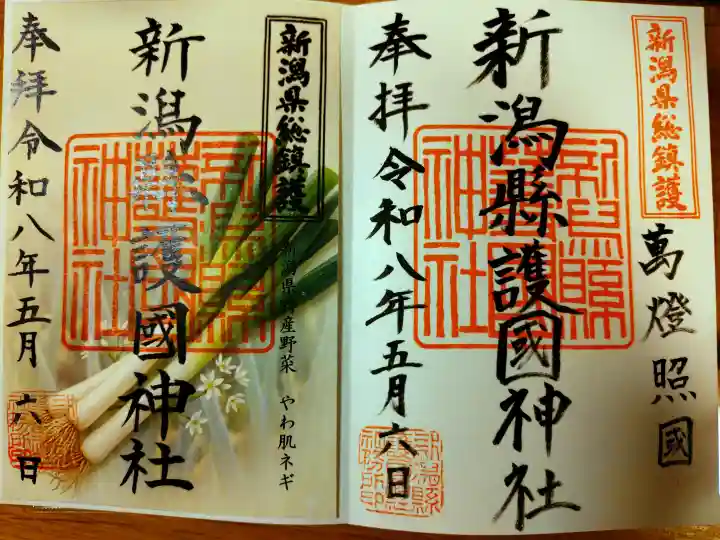 新潟県総鎮護
萬燈照國
新潟縣護國神社
奉拝令和八年五月六日
新潟県総鎮護
新潟県産野菜 やわ肌ネギ
新潟縣護國神社
奉拝令和八年五月六日